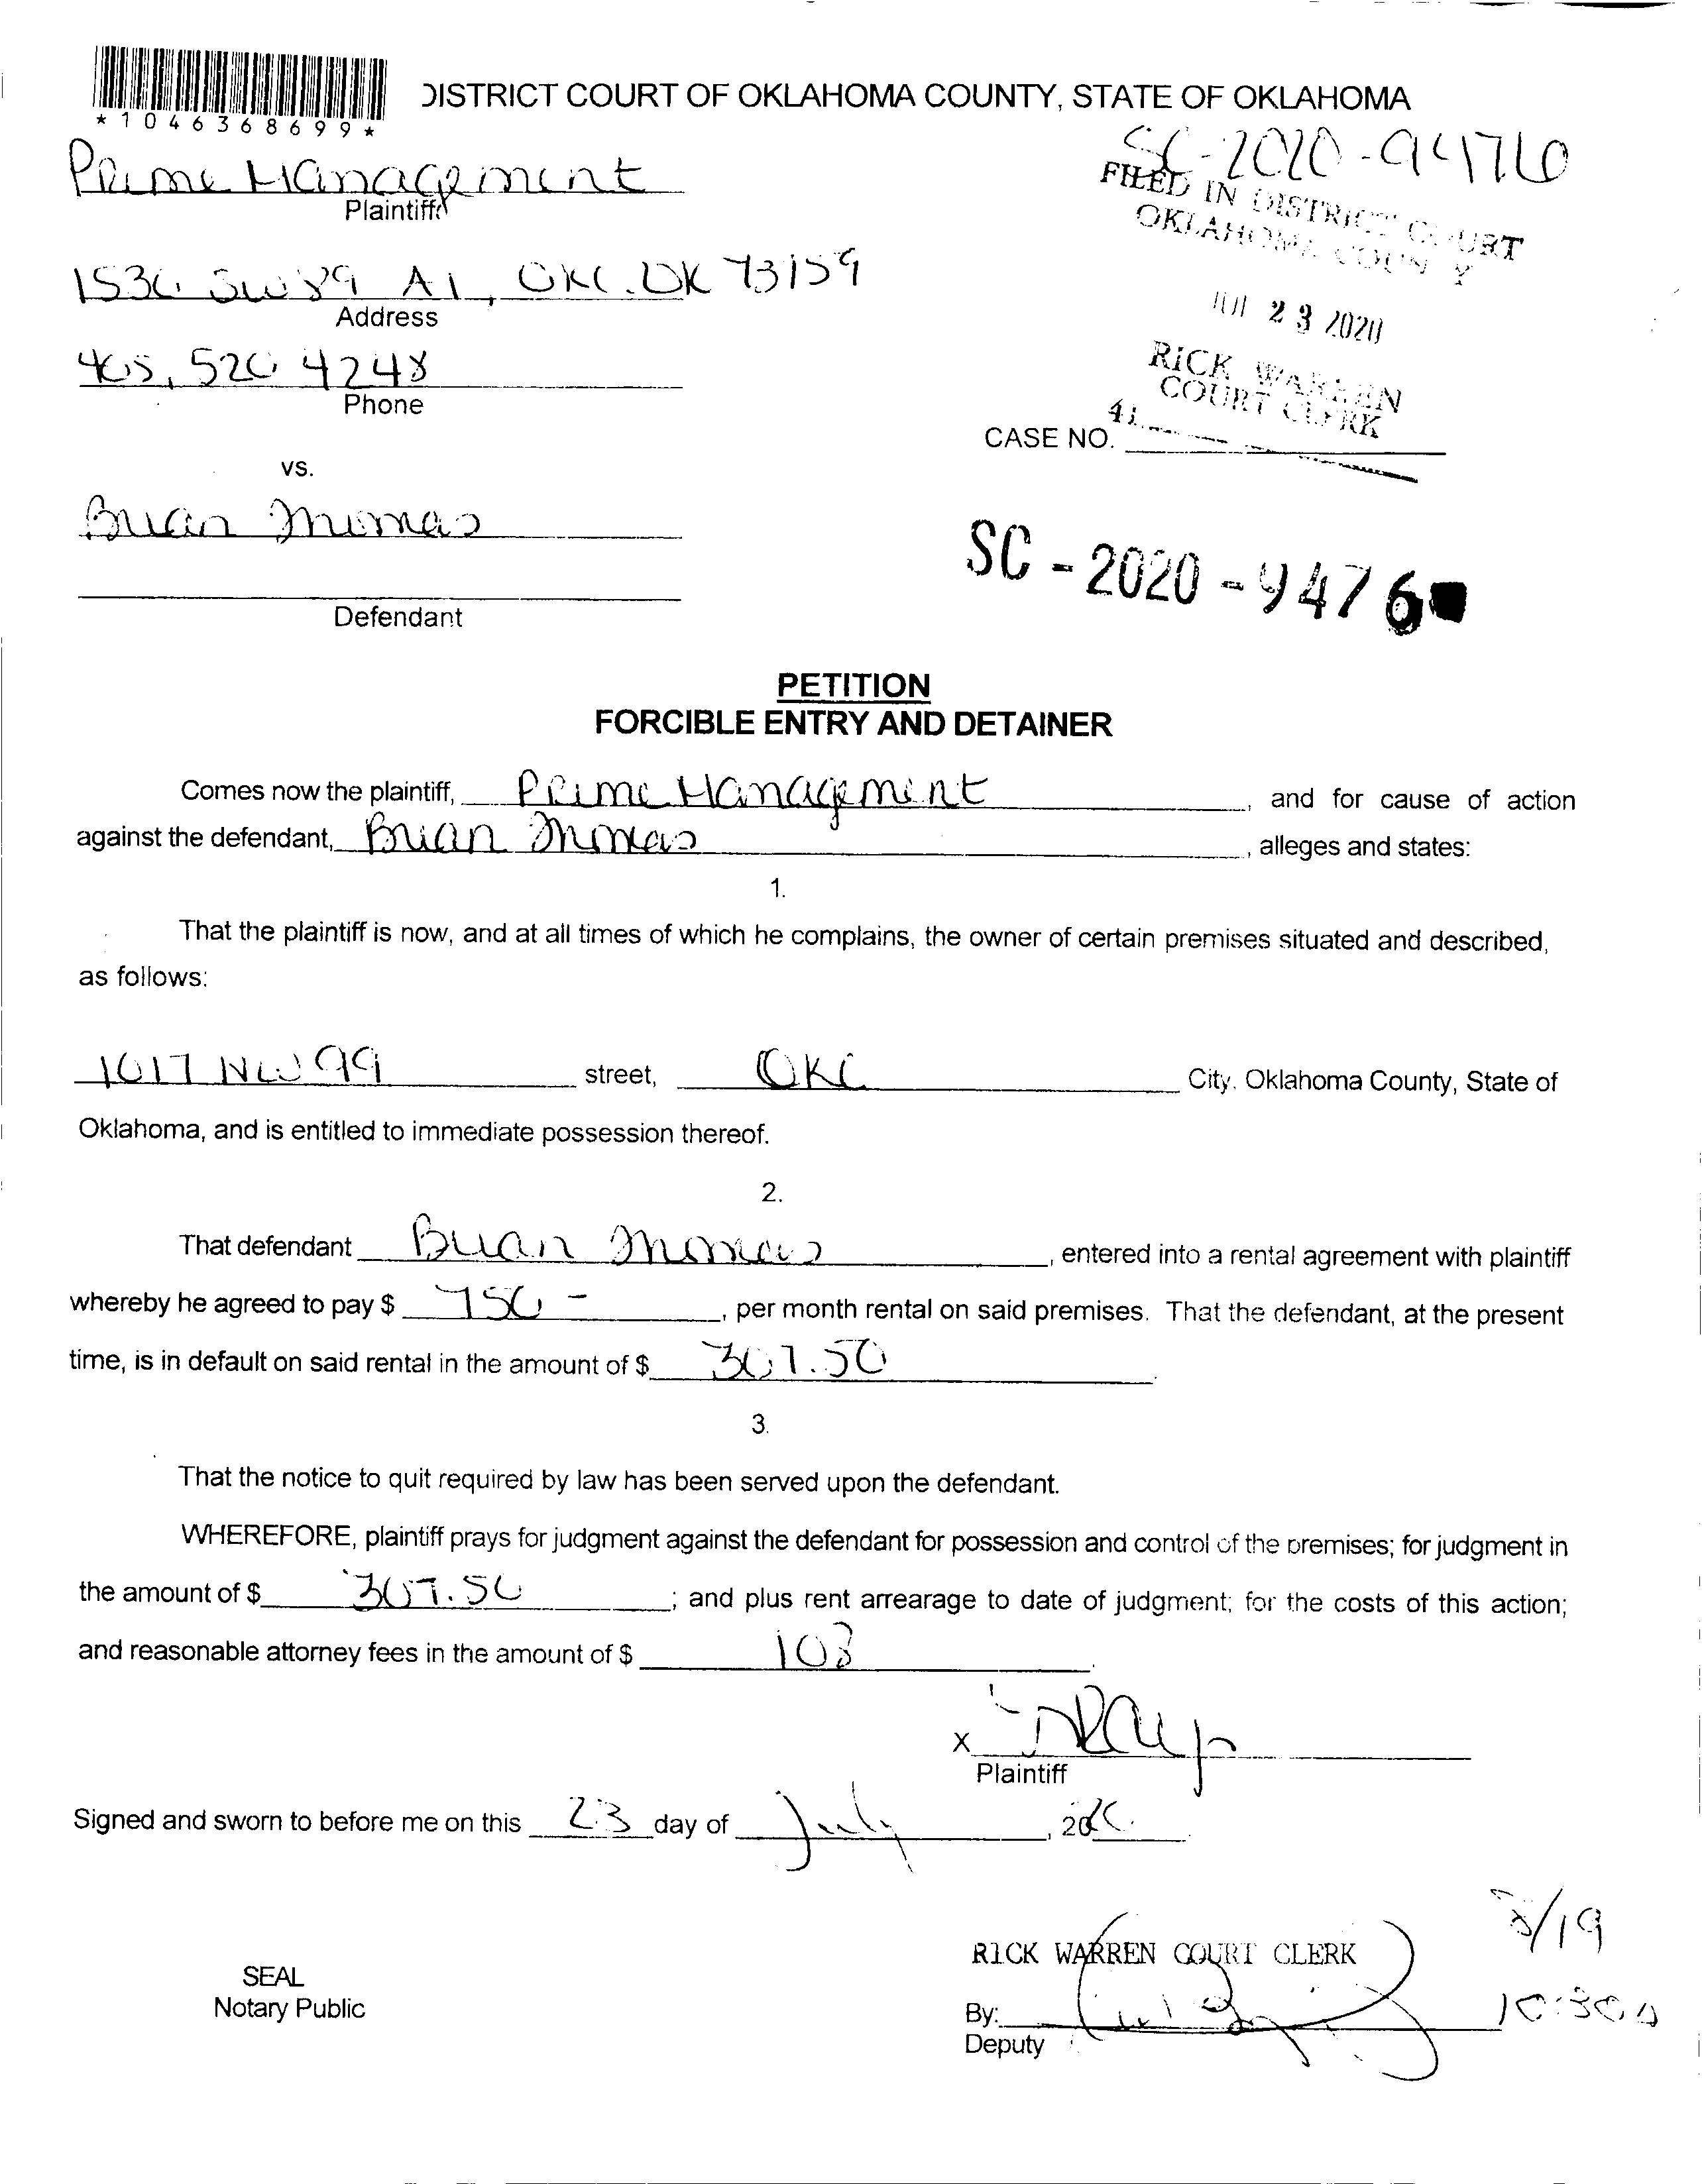 *1046368699*
DISTRICT COURT OF OKLAHOMA COUNTY, STATE OF OKLAHOMA
SC-2020-9476
Prime Management
Plaintiff
FILED IN DISTRICT COURT
OKLAHOMA COUNTY
1530 SW 89 A1, OKC. OK 73159
Address
JUL 23 2020
405, 520 4248
Phone
RICK WARREN
COURT CLERK
41
CASE NO.
vs.
Brian Thomas
SC-2020-9476
Defendant
PETITION
FORCIBLE ENTRY AND DETAINER
Comes now the plaintiff, Prime Management, and for cause of action
against the defendant, Brian Thomas, alleges and states:
1.
That the plaintiff is now, and at all times of which he complains, the owner of certain premises situated and described,
as follows:
1017 NW 99 street, OKC City. Oklahoma County, State of
Oklahoma, and is entitled to immediate possession thereof.
2.
That defendant Brian Thomas, entered into a rental agreement with plaintiff
whereby he agreed to pay $ 750 -, per month rental on said premises. That the defendant, at the present
time, is in default on said rental in the amount of $ 307.50.
3.
That the notice to quit required by law has been served upon the defendant.
WHEREFORE, plaintiff prays for judgment against the defendant for possession and control of the premises; for judgment in
the amount of $ 307.50; and plus rent arrearage to date of judgment; for the costs of this action;
and reasonable attorney fees in the amount of $ 103.
X
Plaintiff
Signed and sworn to before me on this 23 day of July, 2020
8/19
RICK WARREN COURT CLERK
SEAL
Notary Public
By:
10:30a
Deputy